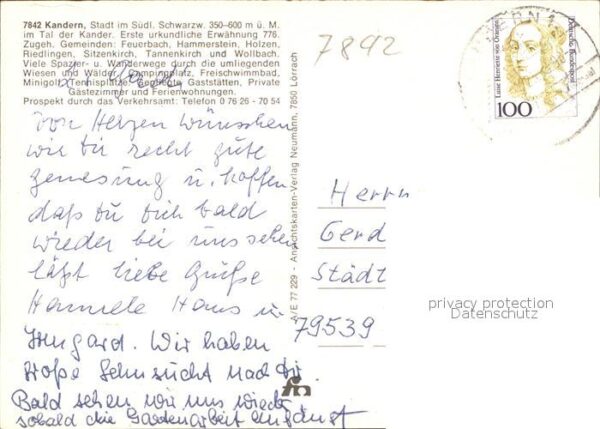 7842 Kandern, Stadt im Südl. Schwarzw. 350–600 m ü. M.
im Tal der Kander. Erste urkundliche Erwähnung 776.
Zugeh. Gemeinden: Feuerbach, Hammerstein, Holzen,
Riedlingen, Sitzenkirch, Tannenkirch und Wollbach.
Viele Spazier- u. Wanderwege durch die umliegenden
Wiesen und Wälder. Campingplatz, Freischwimmbad,
Minigolf, Tennisplätze. Gepflegte Gaststätten, Private
Gästezimmer und Ferienwohnungen.
Prospekt durch das Verkehrsamt: Telefon 0 76 26 - 70 54
Von Herzen wünschen
wir Dir recht gute
genesung u. hoffen
daß Du Dich bald
wieder bei uns sehen
läßt liebe Grüße
Hannele Hans u
Irmgard. Wir haben
große Sehnsucht nach Dir.
Bald sehen wir uns wieder
sobald die Gartenarbeit anfängt
E 77 229 - Ansichtskarten-Verlag Neumann, 7850 Lörrach
7892
Luise Henriette von Oranien
Deutsche Bundespost
100
Herrn
Gerd
Städt
79539
privacy protection
Datenschutz
fm